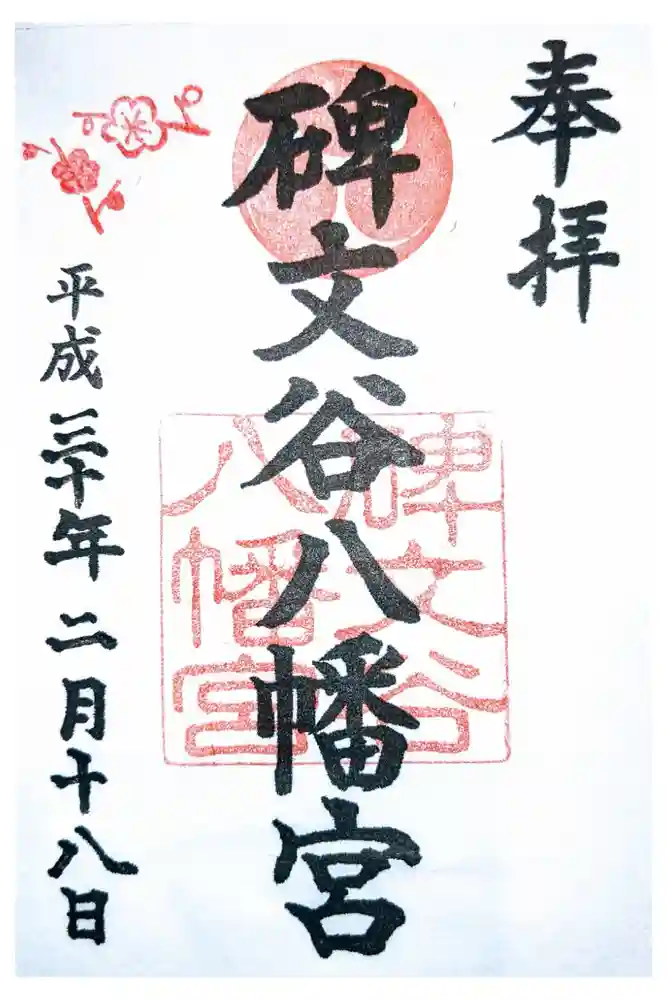 奉拝
碑文谷八幡宮
碑文谷
八幡宮
平成三十年二月十八日